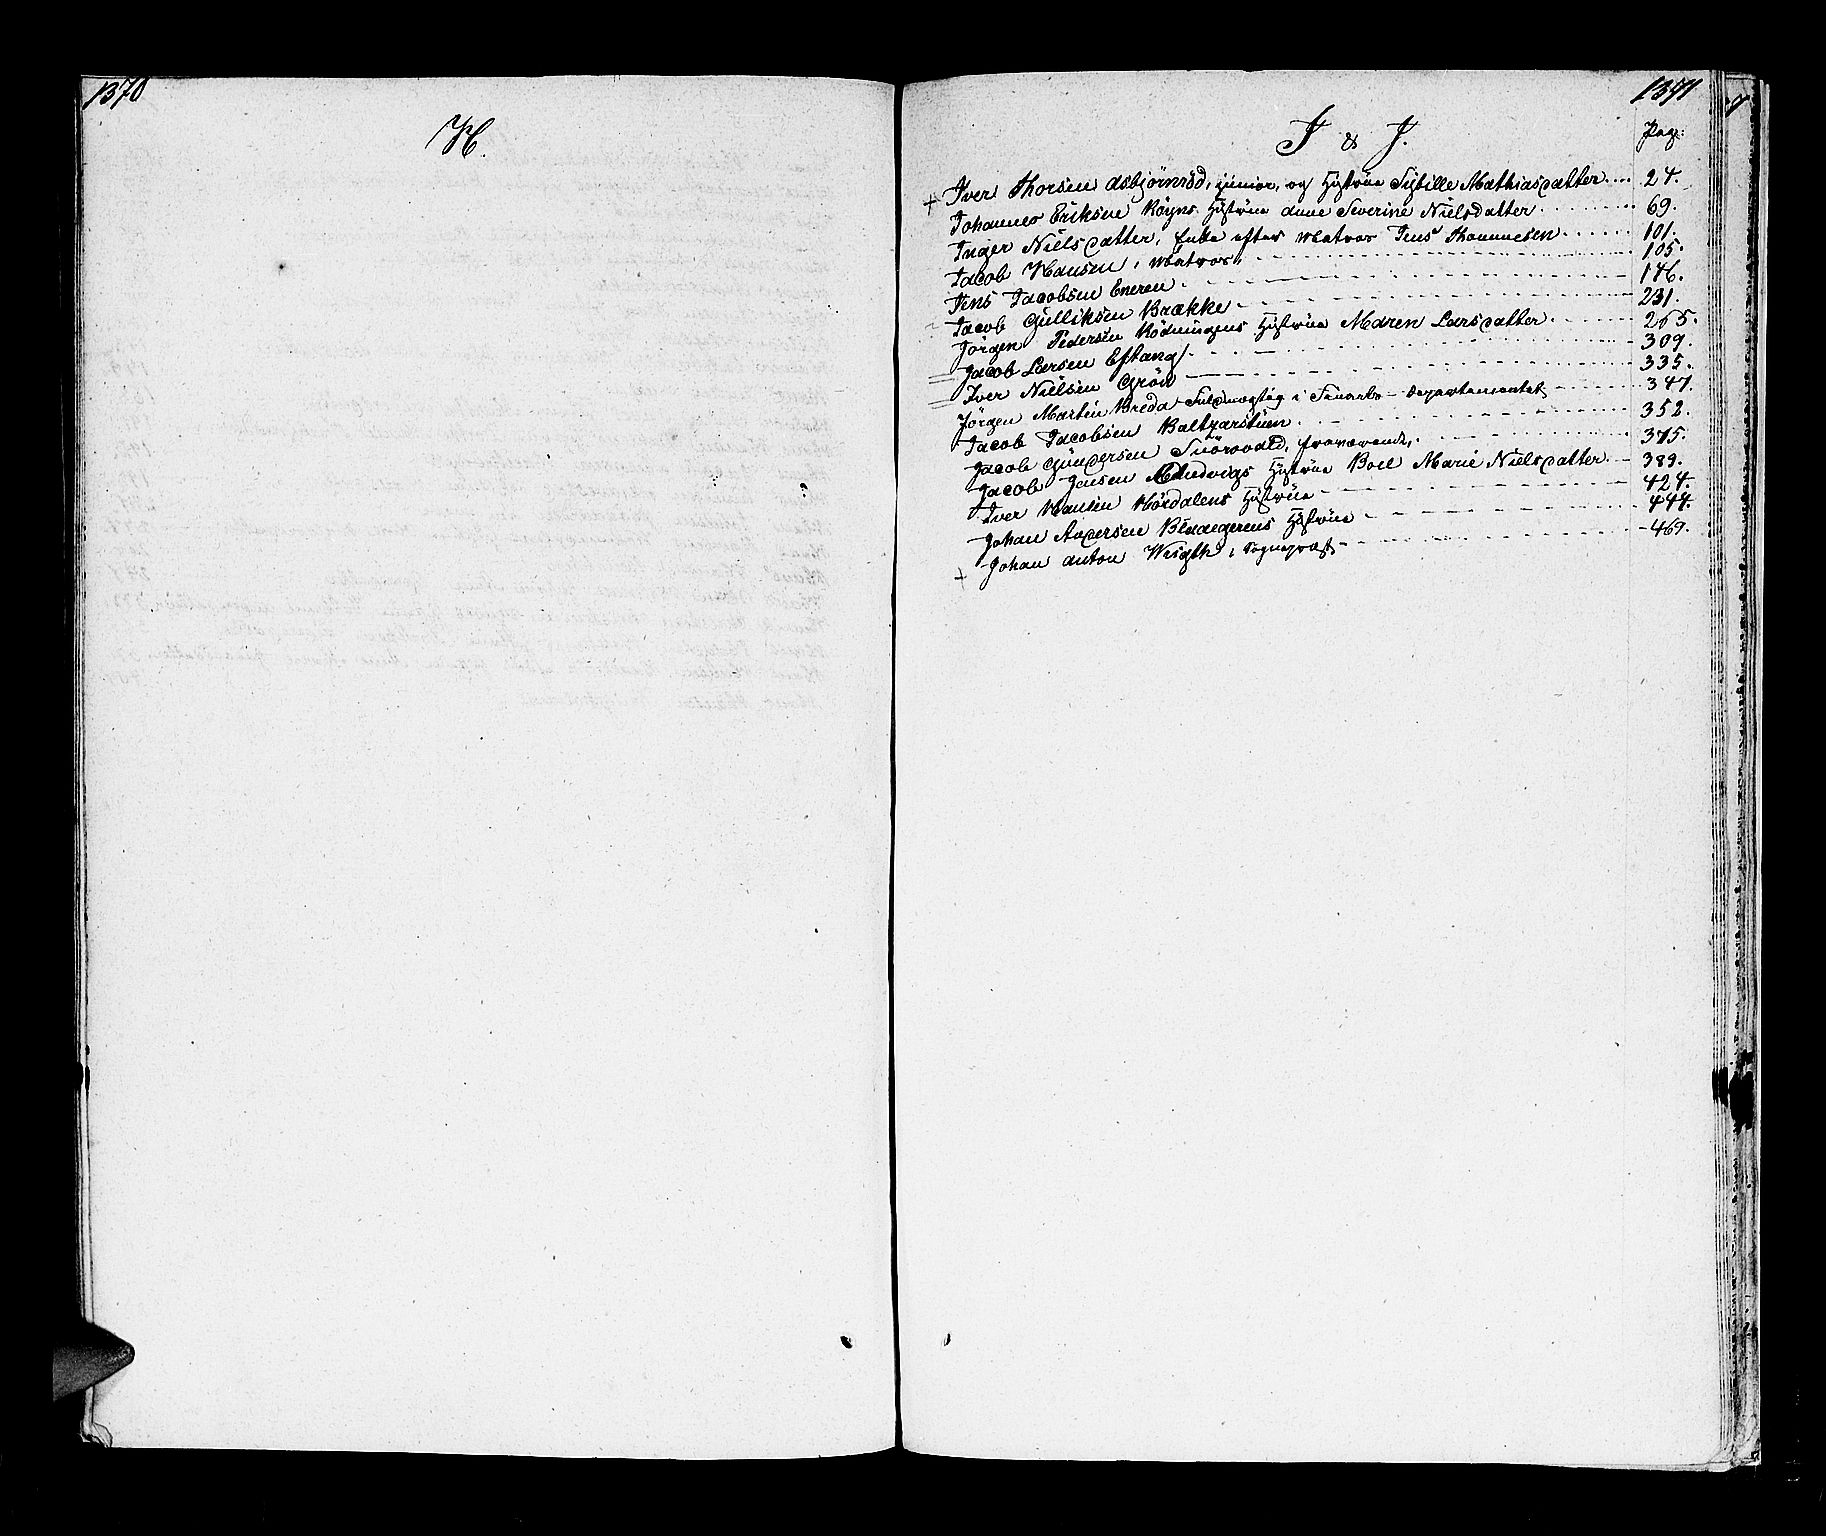 1370
H.
1371
I & J.
Pag:
Iver Thorsen Asbjørnrød, junior, og Hustrue Sybille Mathiasdatter.... 24.
Johannes Eriksen Røyns Hustrue Anne Severine Nielsdatter 69.
Inger Nielsdatter, Enke efter Matros Jens Thommesen 101.
Jacob Hansen, Matros, 105.
Jens Jacobsen Eneren 146.
Jacob Gulliksen Brække 231.
Jørgen Pedersen Rødningens Hustrue Maren Larsdatter 265.
Jacob Larsen Eftang 309.
Iver Nielsen Grøn 335.
Jørgen Martin Breda Fuldmægtig i Finants-Departementet 347.
Jacob Jacobsen Baltzarstuen 352.
Jacob Gundersen fraværende, 375.
Jacob Jensen Hustrue Boel Marie Nielsdatter 389.
Iver Hansen Hørdalens Hustrue 424.
Johan Andersen Hustrue 444.
Johan Anton Wrigth, Sogneprest 469.